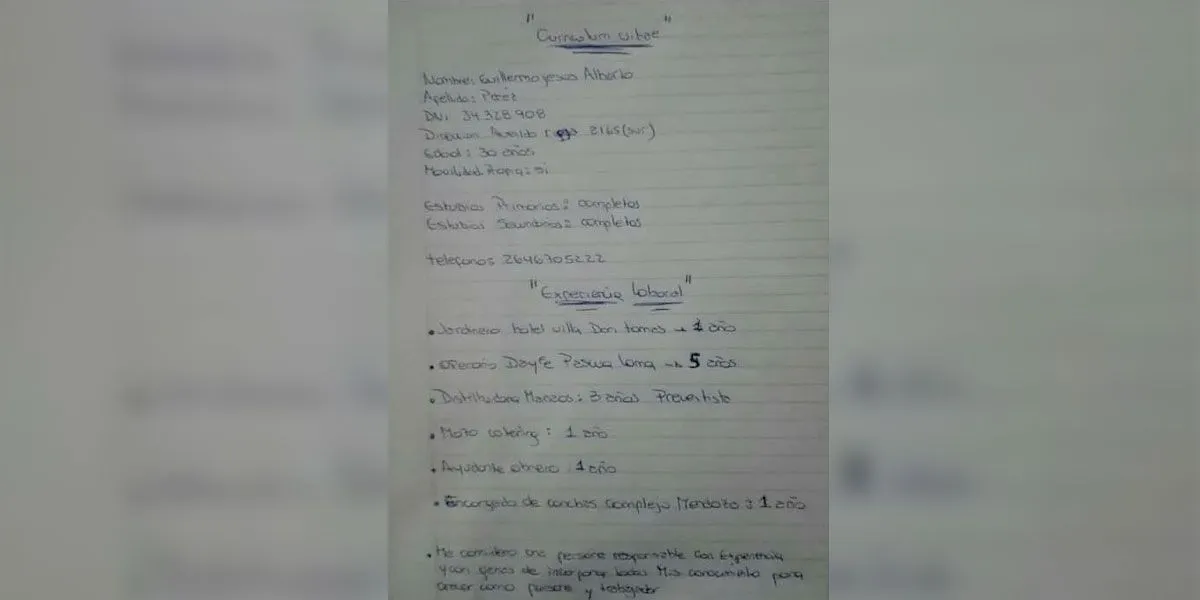 "Curriculum vitae"
Nombre: Guillermo Jesus Alberto
Apellido: Perez
DNI 34.328.908
Direccion 2165 (sur)
Edad: 30 años
Movilidad Propia: si
Estudios Primarios: completos
Estudios Secundarios: completos
telefonos 2646705222
"Experiencia laboral"
• Jardinero hotel villa Don tomas → 1 año
• Operario Dayfe Pascua lama → 5 años
• Distribuidora Manzcos: 3 años Preventista
• Mozo catering: 1 año
• Ayudante obrero 1 año
• Encargado de canchas complejo Mendoza: 1 año
• Me considero una persona responsable Con Experiencia
y con ganas de incorporar todos Mis conocimiento para
crecer como persona y trabajador